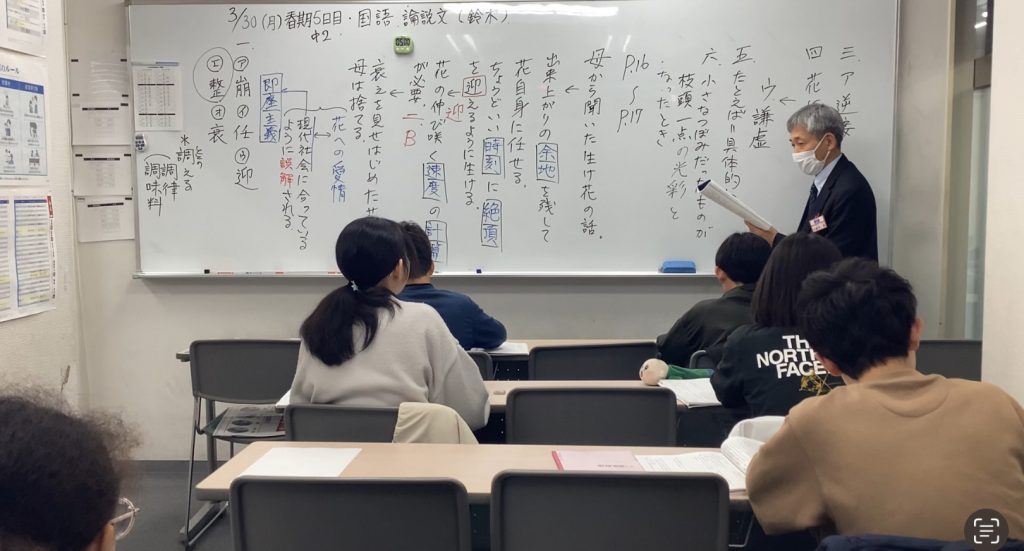 3/30(月)春期5日目・国語・論説文(鈴木)
中2.
三.ア 逆接
四 花
ウ 謙虚
五.たとえば=具体的
六.小さなつぼみだったものが
枝頭一点の光彩と
なったとき
P.16
〜
P.17
母から聞いた生け花の話。
出来上がりの余地を残して
花自身に任せる。
ちょうどいい時刻に絶頂
を迎えるように生ける。
迎
花の伸び咲く速度の計算
が必要.
二.B
衰えを見せはじめた
母は捨てる。
花への愛情
現代社会に合っている
ように誤解される
即座主義
一.
ア崩 イ任 ウ迎
エ整 オ衰
※調える
調律
調味料
のルール
THE
NORTH
FACE